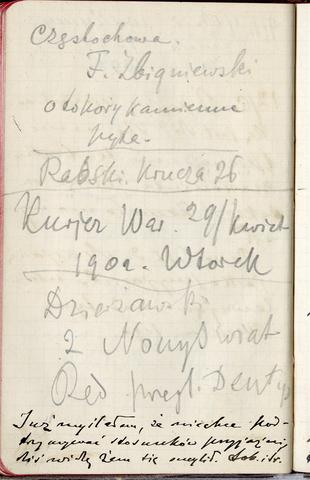 Częstochowa.
F. Zbigniewski
otokory kamienne
Rabski. Krucza 26
Kurjer War. 29/kwiet
1902. Wtorek
Dzierżawski
2 Nowy Świat
Red przegl. Dentys
Już myślałem, że niechce pod-
trzymywać stosunków przyjaźni,
dziś widzę żem się mylił.